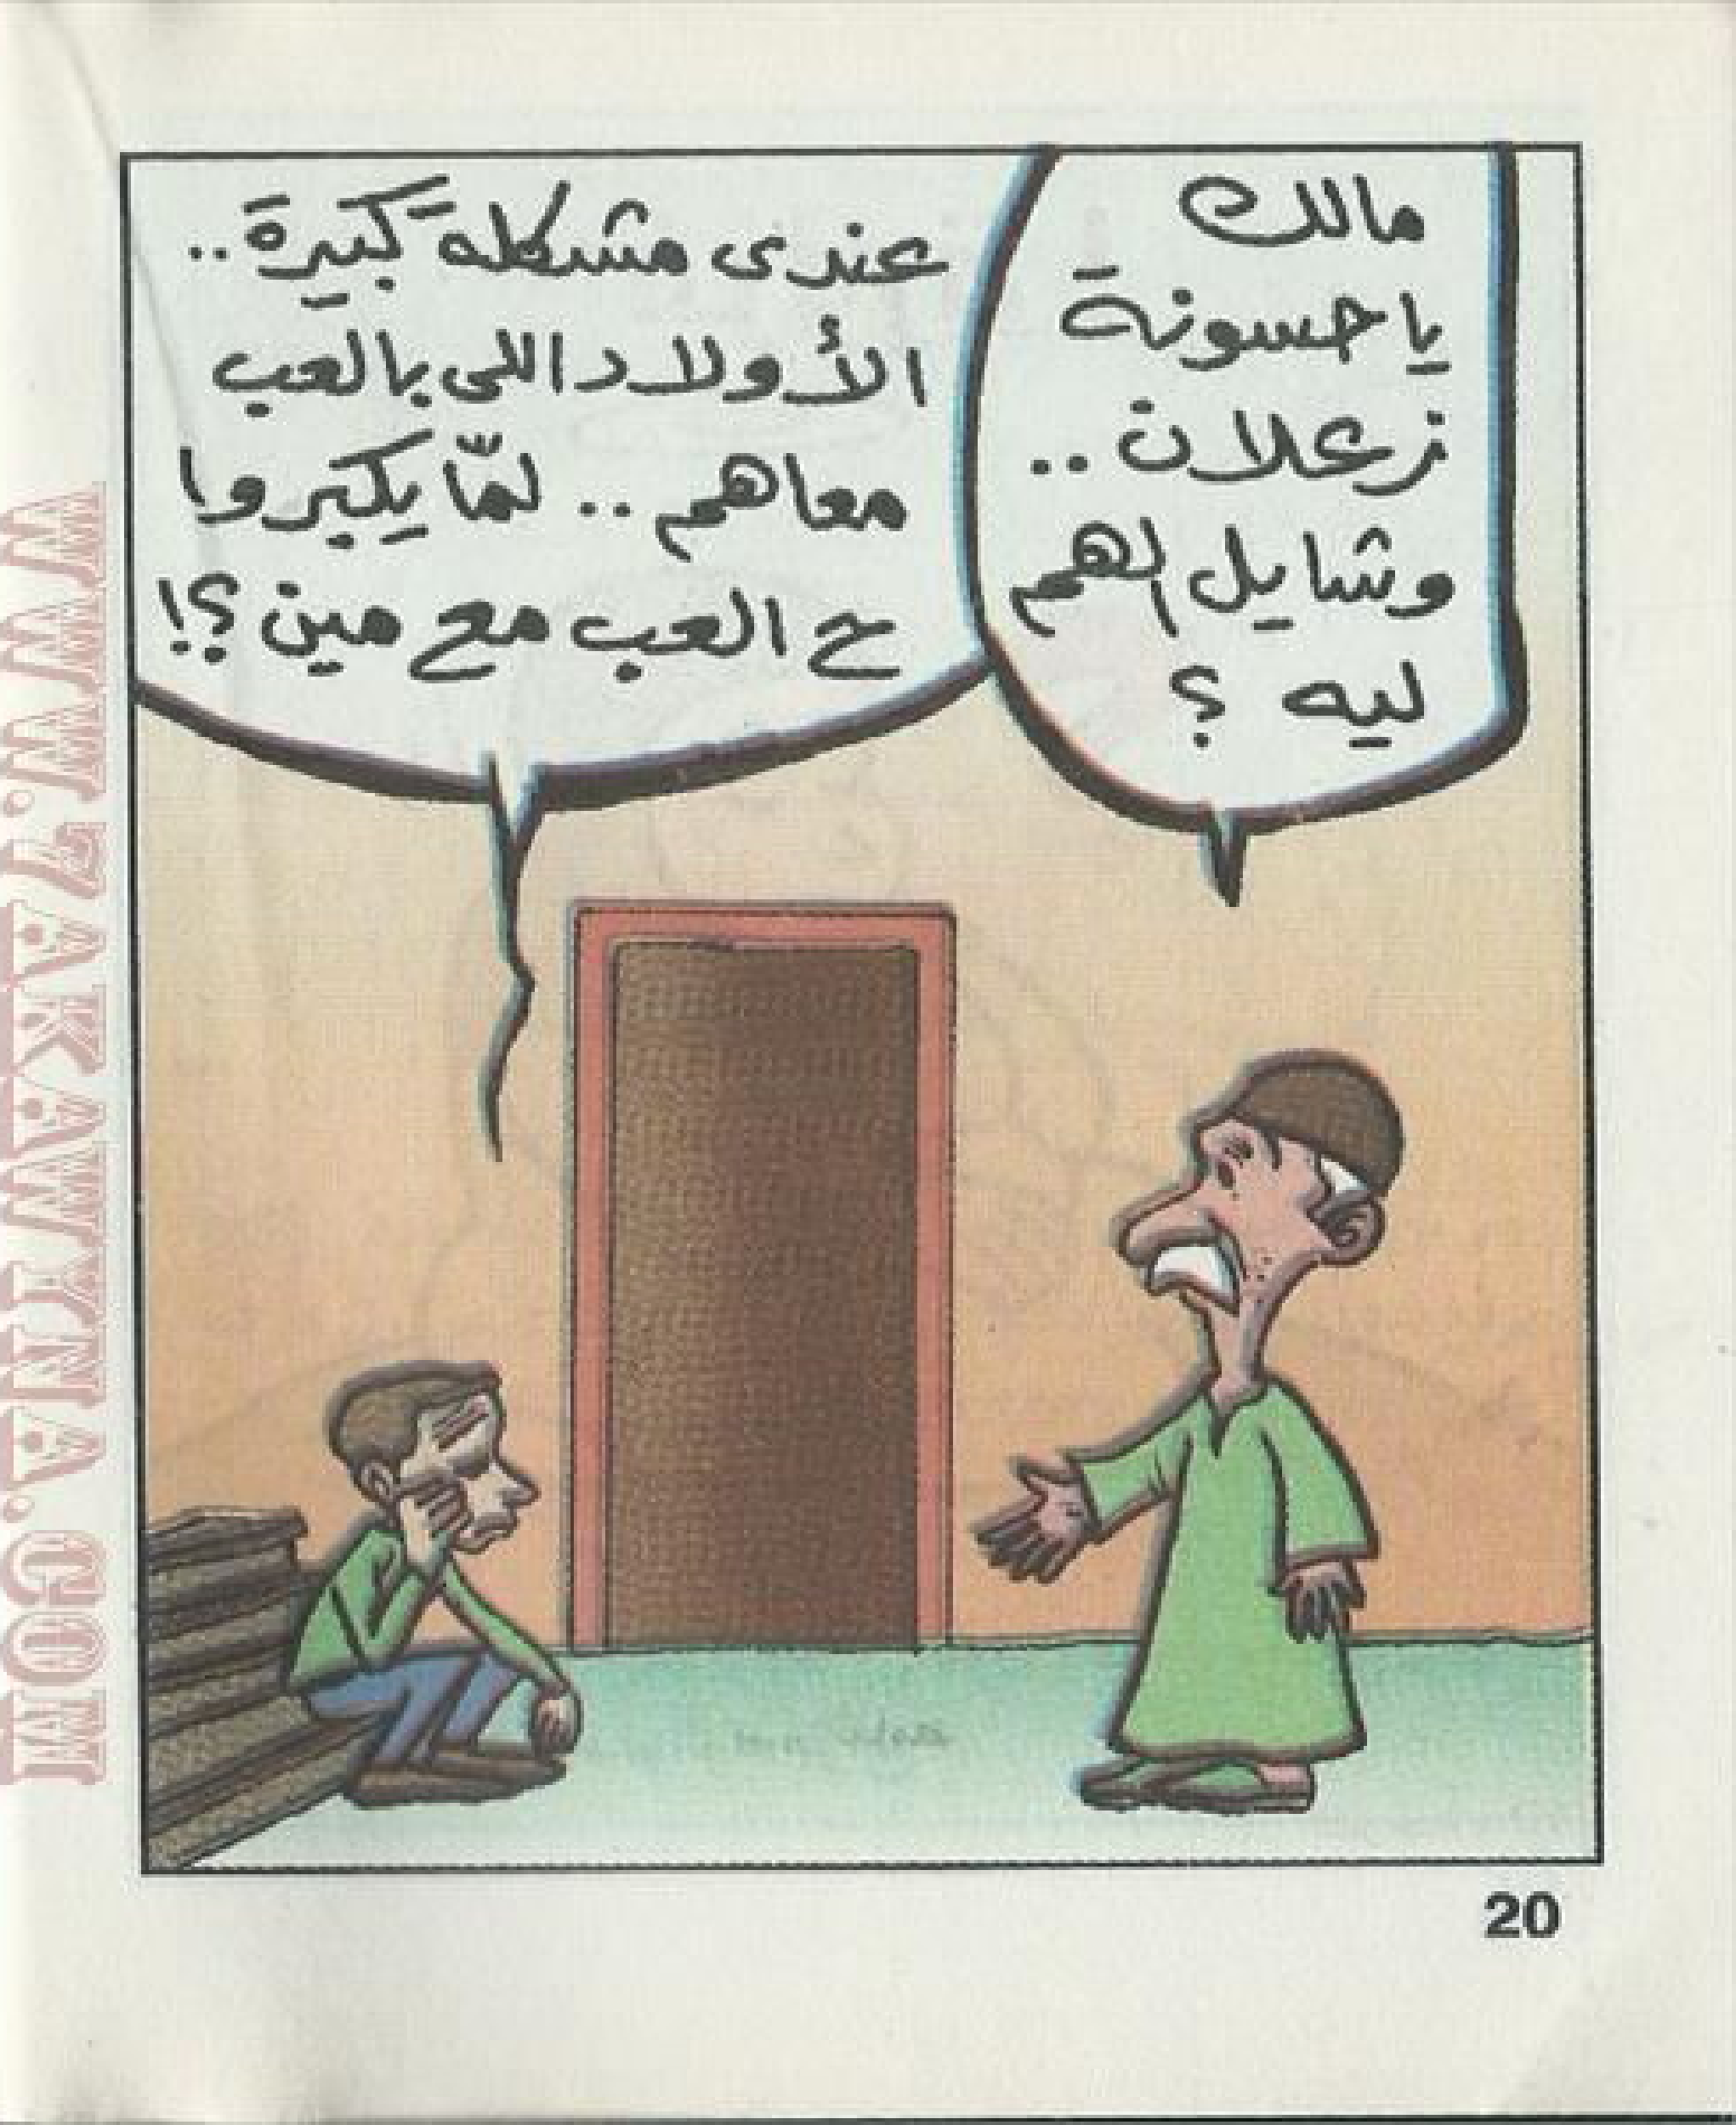 مالك
ياحسونة
زعلان..
وشايل الهم
ليه ؟
عندى مشكلة كبيرة..
الأولاد اللى بالعب
معاهم.. لمّا يكبروا
ح العب مع مين؟!
20
WWW.7AKAWITNA.COM